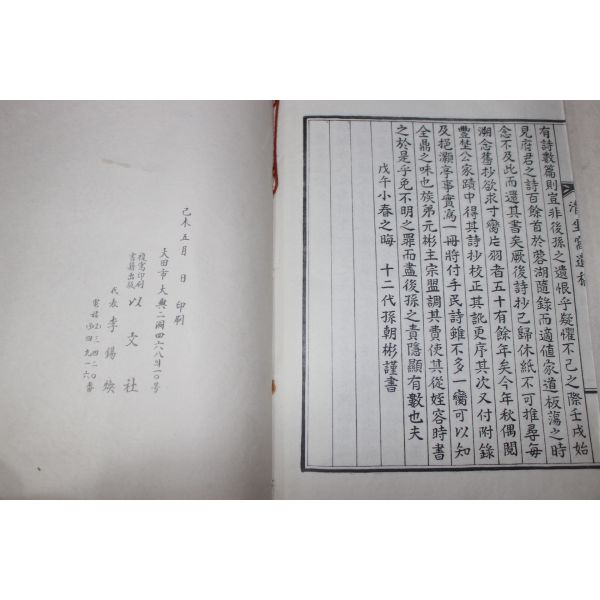 有詩數篇則豈非後孫之遺恨乎疑懼不已之際壬戌始
見府君之詩百餘首於蓉湖隨錄而適値家道板蕩之時
念不及此而還其書矣厥後詩抄已歸休紙不可推尋每
溯念舊抄欲求寸臠片羽者五十有餘年矣今年秋偶閱
豐埜公家蹟中得其詩抄校正其訛更序其次又付附錄
及挹灝序事實寫一冊將付手民詩雖不多一臠可以知
全鼎之味也族弟元彬主宗盟調其費使其從姪容時書
之於是乎免不明之罪而盡後孫之責隱顯有數也夫
戊午小春之晦 十二代孫朝彬謹書
己未 五月 日 印刷
大田市 大興二洞四六八의一〇號
複寫印刷
書籍出版 以文社
代表 李錫
電話 (2) 三四二〇